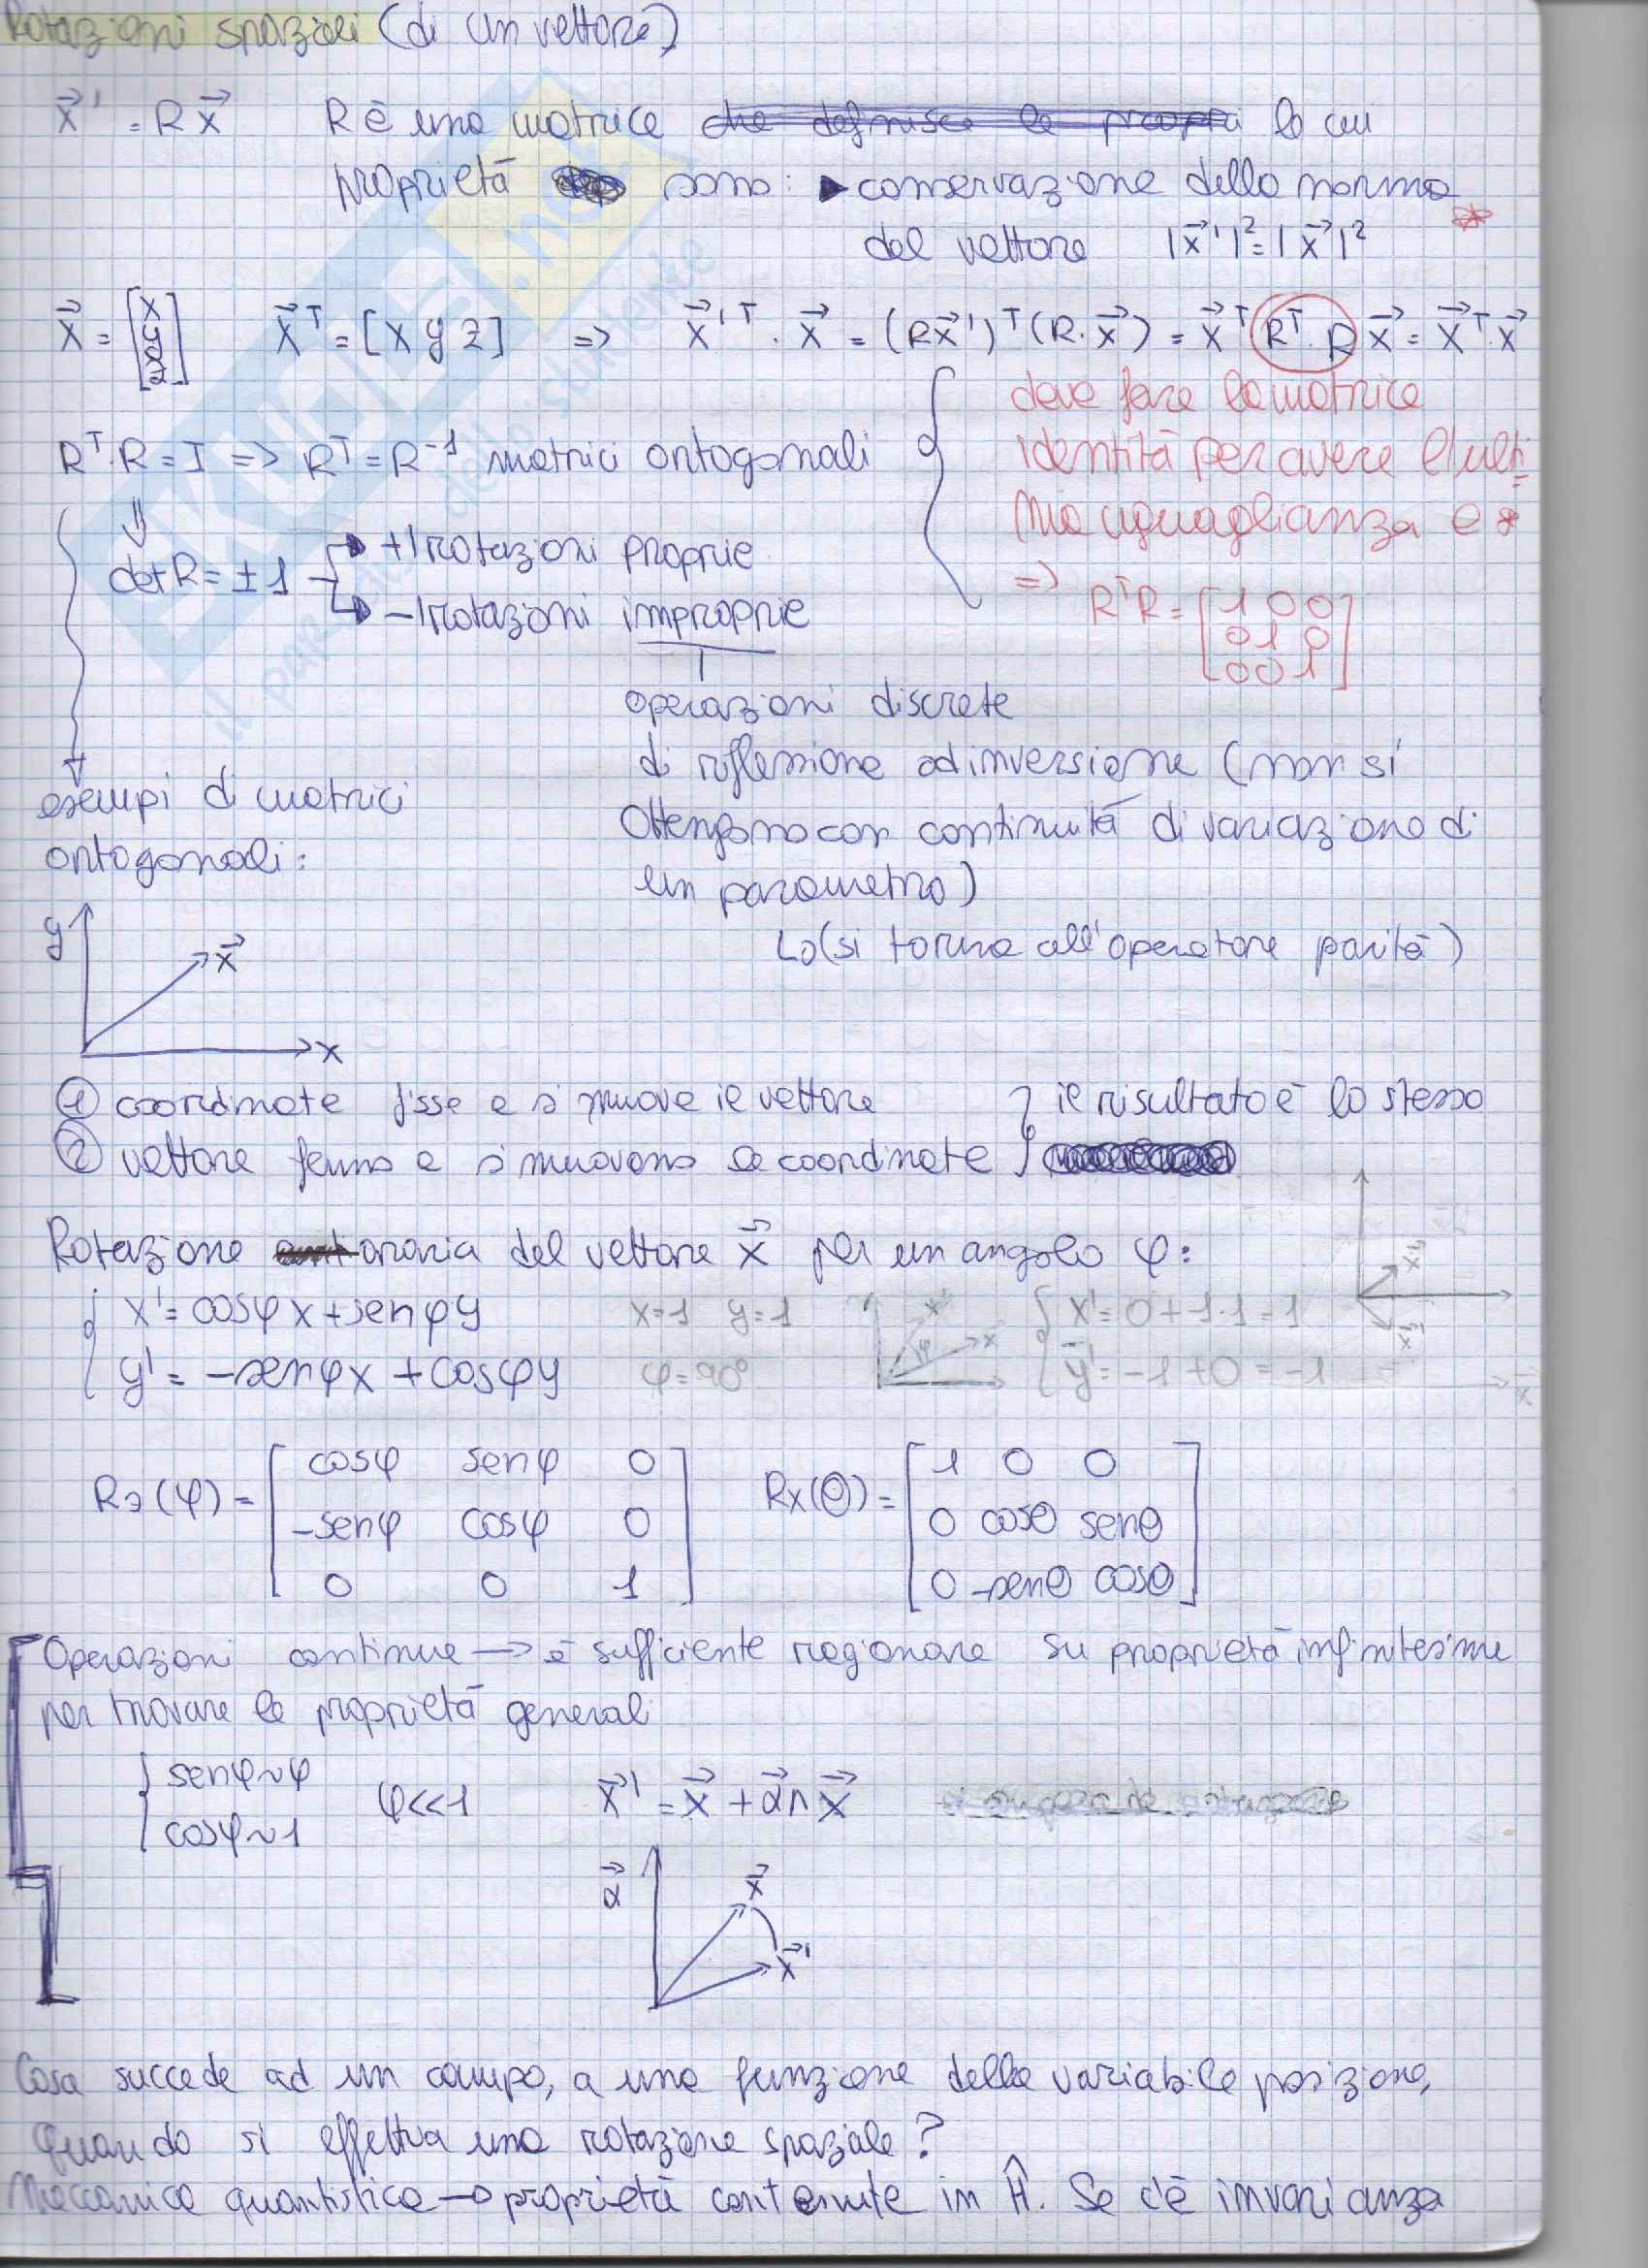 Rotazioni spaziali (di un vettore)
x⃗' = R x⃗ R è una matrice che definisce le propri le cui
proprietà sono: ▶ conservazione della norma
del vettore |x⃗'|² = |x⃗|² *
x⃗ = [x y z] x⃗ᵀ = [x y z] => x⃗'ᵀ · x⃗ = (Rx⃗')ᵀ (R·x⃗) = x⃗ᵀ Rᵀ·R x⃗ = x⃗ᵀ·x⃗
deve fare la matrice
identità per avere l'ulti=
ma uguaglianza e *
=> RᵀR = [1 0 0
0 1 0
0 0 1]
Rᵀ·R = I => Rᵀ = R⁻¹ matrici ortogonali
⇓
det R = ±1 +1 rotazioni proprie
-1 rotazioni improprie
operazioni discrete
di riflessione ad inversione (non si
ottengono con continuità di variazione di
un parametro)
↳ (si torna all'operatore parità)
esempi di matrici
ortogonali:
y x⃗
x
① coordinate fisse e si muove il vettore } il risultato è lo stesso
② vettore fermo e si muovono le coordinate
Rotazione oraria del vettore x⃗ per un angolo φ:
x' = cosφ x + senφ y x=1 y=1 x' = 0+1·1 = 1
y' = -senφ x + cosφ y φ=90° y' = -1+0 = -1
x⃗
x⃗'
Rz(φ) = [cosφ senφ 0 Rx(θ) = [1 0 0
-senφ cosφ 0 0 cosθ senθ
0 0 1] 0 -senθ cosθ]
Operazioni continue → è sufficiente ragionare su proprietà infinitesime
per trovare le proprietà generali
senφ~φ φ<<1 x⃗' = x⃗ + α⃗ ∧ x⃗
cosφ~1
α⃗ x⃗
x⃗'
Cosa succede ad un campo, a una funzione della variabile posizione,
quando si effettua una rotazione spaziale?
Meccanica quantistica → proprietà contenute in Ĥ. Se c'è invarianza
SKUOLA.net
il paradiso dello studente